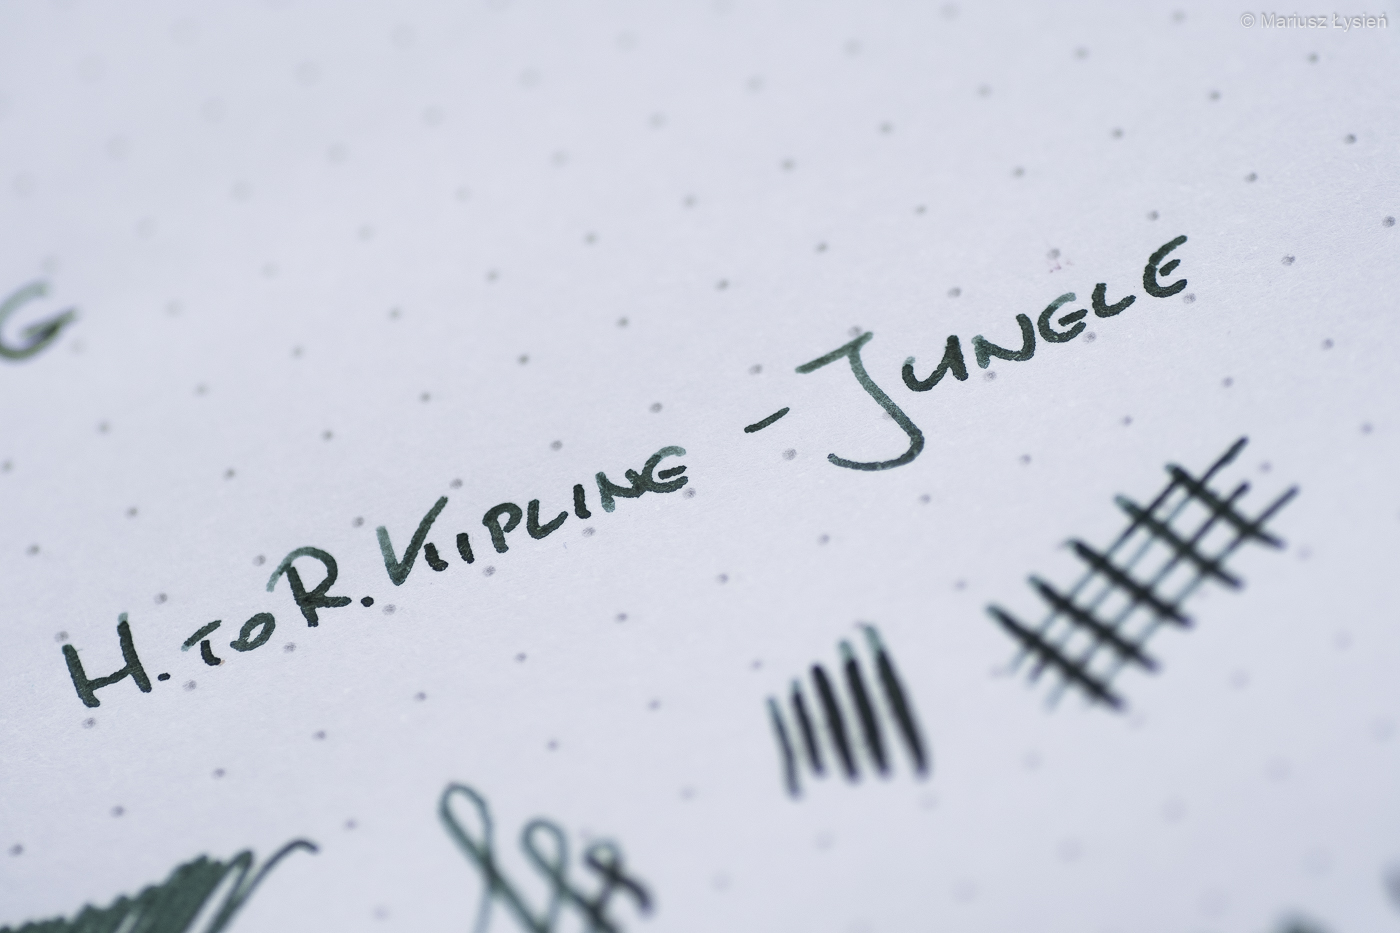 © Mariusz Łysień
G
H. TO R. KIIPLING - JUNGLE